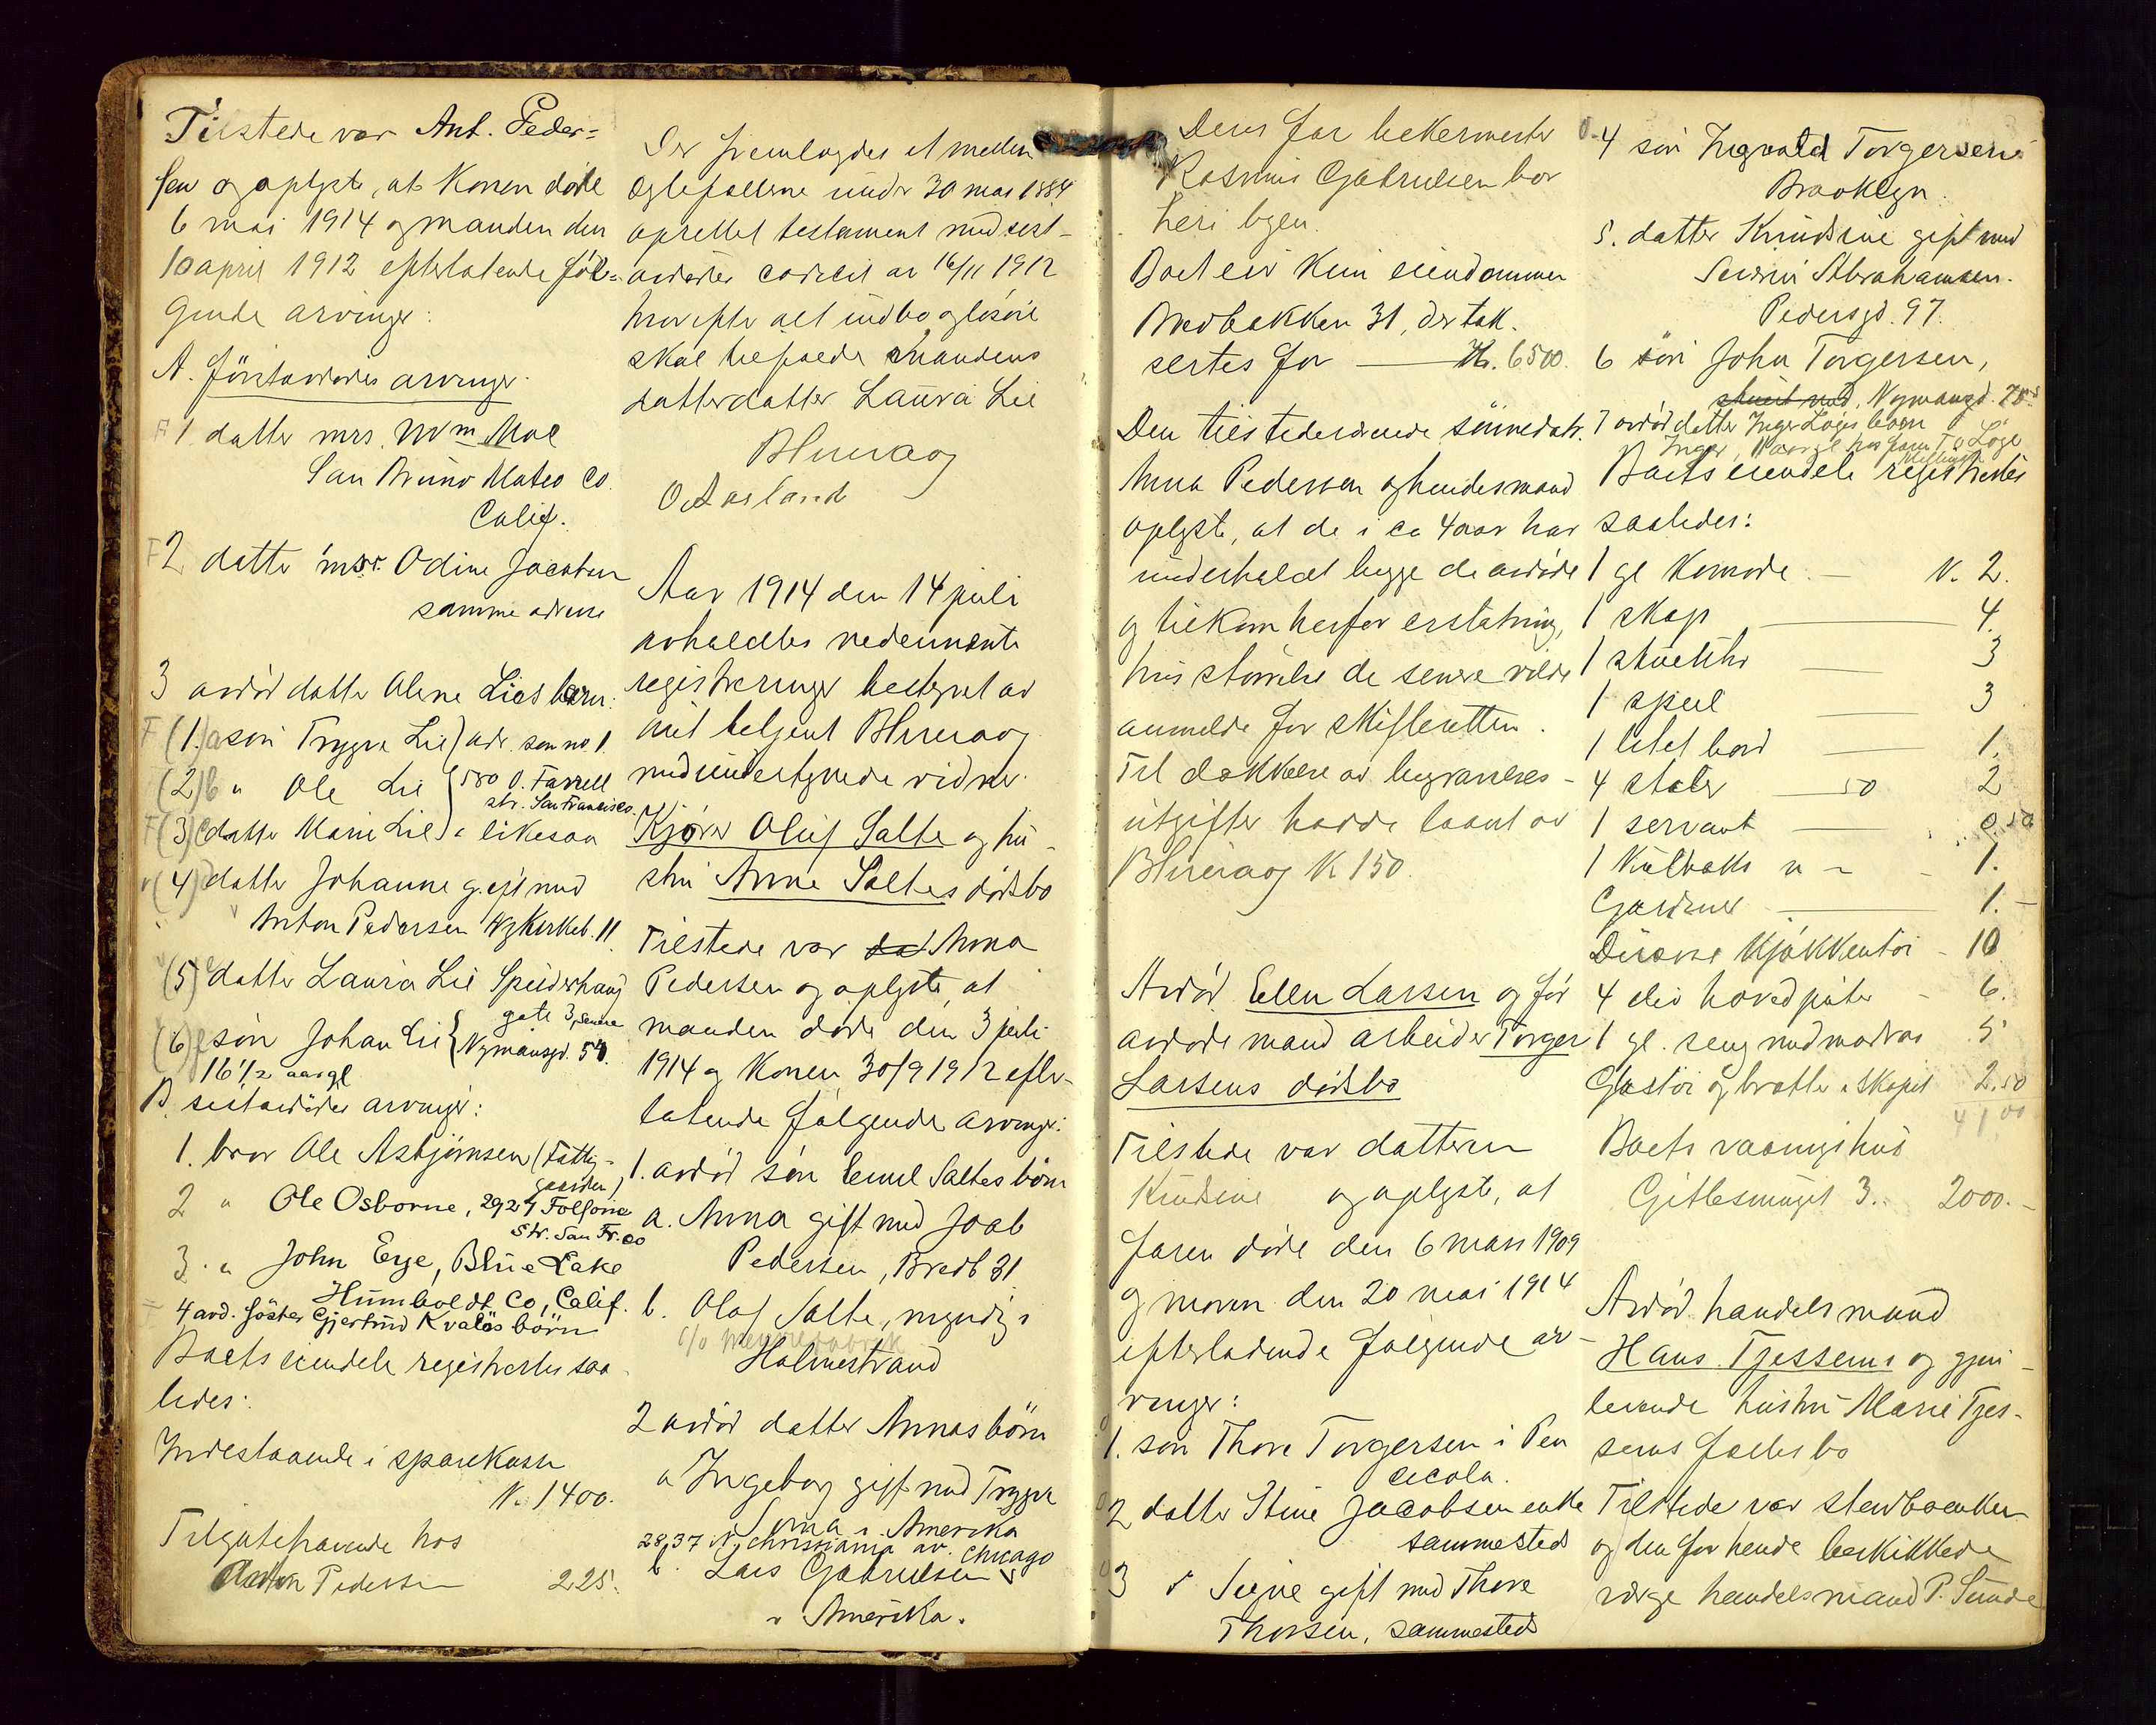 Tilstede var Ant. Peder-
sen og oplyste, at konen døde
6 mai 1914 og manden den
10 april 1912 efterlatende føl-
gende arvinger:
A. førstavdødes arvinger.
1. datter mrs. Wm Moe
San Bruno Mateo Co.
Calif.
2 datter mrs. Odine Jacobsen
samme adresse
3 avdød datter Olene Lies børn:
(1) a søn Trygve Lie) adr. som no 1.
(2) b " Ole Lie { 580 O. Farrell
str. San Francisco.
(3) c datter Marie Lie) " likesaa
(4) datter Johanne gift med
Anton Pedersen Ny Kirkeb. 11.
(5) e datter Laura Lie Speiderhaug
gate 3, senere
(6) f søn Johan Lie { Nymansgd. 50.
16 1/2 aar gl
B. sistavdødes arvinger:
1. bror Ole Asbjørnsen (Fattig-
gaarden)
2 " Ole Osborne, 2924 Folsome
Str. San Fr.co
3. " John Erge, Blue Lake
Humboldt Co, Calif.
4 avd. søster Gjertrud Kvaløs børn
Boets eiendele registrertes saa-
ledes:
Indestaaende i sparekasse
K. 1400.
Tilgutehavende hos
Anton Pedersen 225.
Der fremlagdes et mellem
egtefællerne under 30 mai 1884
oprettet testament med sist-
avdødes codicil av 16/11 1912
hvorefter alt indbo og løsøre
skal tilfalde mandens
datterdatter Laura Lie
BHuaas
O Aasland
Aar 1914 den 14 juli
avholdtes nedennevnte
registreringer bestyret av
aut betjent BHuaas
med undertegnede vidner.
Kjører Oluf Salte og hu-
stru Anne Saltes dødsbo
Tilstede var Anna
Pedersen og oplyste, at
manden døde den 3 juli
1914 og konen 30/9 1912 efter-
latende følgende arvinger:
1. avdød søn Emil Saltes børn
a. Anna gift med Joab
Pedersen, Bredb 31
b. Olaf Salte, myndig i
c/o
Holmestrand
2 avdød datter Annas børn
a Ingeborg gift med Trygve
i Amerika
2837 N. Christiania av. Chicago
b. Lars Gabrielsen
i Amerika.
Deres far bekermester
Rasmus Gabrielsen bor
her i byen.
Boet eier kun eiendommen
Bredbakken 31, der tak-
sertes for Kr. 6500.
Den tilstedeværende sønnedatr.
Anna Pedersen og hendes mand
oplyste, at de i ca 4 aar har
underholdt begge de avdøde
og tilkom herfor erstatning,
hvis størrelse de senere vilde
anmelde for skifteretten.
Til dækkelse av begravelses-
utgifter hadde laant av
BHuaas K 150.
Avdød Ellen Larsen og før
avdøde mand arbeider Torger
Larsens dødsbo
Tilstede var datteren
Knudsine og oplyste, at
faren døde den 6 mars 1909
og moren den 20 mai 1914
efterladende følgende ar-
vinger:
1. søn Thore Torgersen i Pen
cecola.
2 datter Stine Jacobsen enke
sammesteds
3 " Signe gift med Thore
Thorsen, sammesteds
4 søn Ingvald Torgersen
Brooklyn.
5. datter Knudsine gift med
Severin Abrahamsen.
Pedersgd. 97.
6 søn John Torgersen,
Nymansgd. 78
7 avdød datter Inger Løges børn
Inger, hos faren T. O Løge
Boets eiendele registrertes
saaledes:
1 gl komode K. 2.
1 skap 4.
1 stueuhr 3
1 speil 3
1 litet bord 1.
4 stoler 50 2
1 servant 0.50
1 kulboks 1.
Gardiner 1.-
Diverse kjøkkentøi 10
4 div hovedputer 6.
1 gl. seng med madras 5
Glastøi og bretter i skapet 2.50
41 00
Boets vaaningshus
Gitlesmuget 3. 2000.-
Avdød handelsmand
Hans Tjessems og gjen-
levende hustru Marie Tjes-
sems fællesbo
Tilstede var stervboenken
og den for hende beskikkede
værge handelsmand P. Sunde